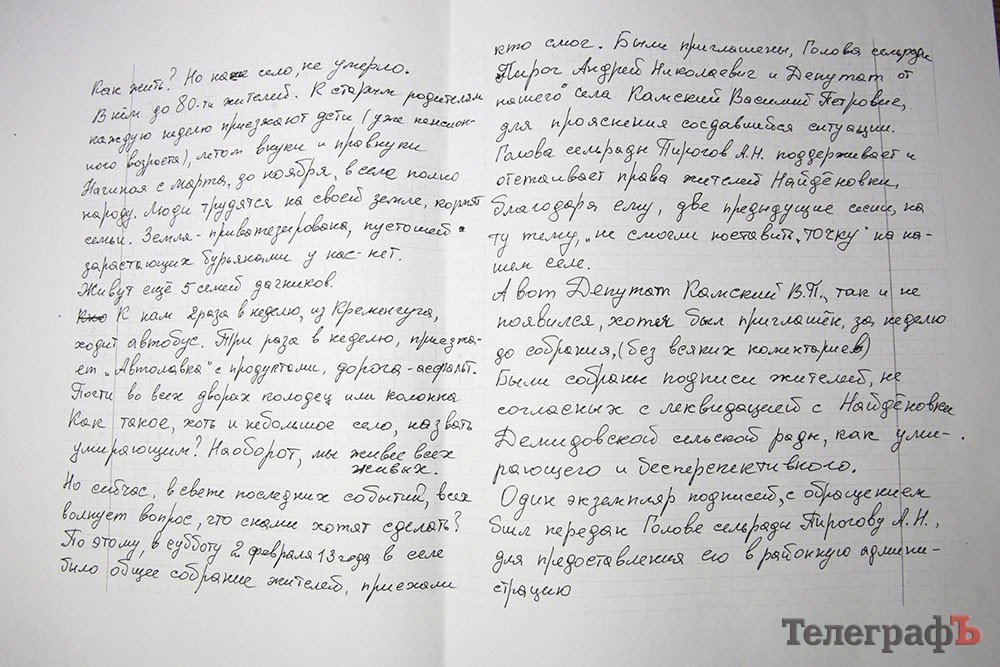 Как жить? Но наше село, не умерло.
В нём до 80-ти жителей. К старым родителям
каждую неделю приезжают дети (уже пенсион-
ного возроста), летом внуки и правнуки
Начиная с марта, до ноября, в селе полно
народу. Люди трудятся на своей земле, кормят
семьи. Земля - приватезирована, пустошей
зарастающих бурьянами у нас - нет.
Живут ещё 5 семей дачников.
К нам 2 раза в неделю, из Кременчуга,
ходит автобус. Три раза в неделю, приезжа-
ет „Автолавка“ с продуктами, дорога - асфальт.
Почти во всех дворах колодец или колонка
Как такое, хоть и небольшое село, назвать
умирающим? Наоборот, мы живее всех
живых.
Но сейчас, в свете последних событий, всех
волнует вопрос, что снами хотят сделать?
По этому, в субботу 2 февраля 13 года в селе
было общее собрание жителей, приехали
кто смог. Были приглашены, Голова сельради
Пирог Андрей Николаевич и Депутат от
нашего села Камский Василий Петрович,
для прояснения создавшийся ситуации.
Голова сельради Пирогов А.Н. поддерживает и
отстаивает права жителей Найдёновки,
благодаря ему, две предыдущие сесии, на
ту тему, „не смогли поставить „точку“ на на-
шем селе.
А вот Депутат Камский В.П., так и не
появился, хотя был приглашён, за неделю
до собрания, (без всяких коментариев)
Были собраны подписи жителей, не
согласных с леквидацией с Найдёновки
Демидовской сельской ради, как уми-
рающего и бесперспективного.
Один экземпляр подписей, с обращением
был передан Голове сельради Пирогову А.Н.,
для предоставления его в районную админи-
страцию
ТелеграфЪ